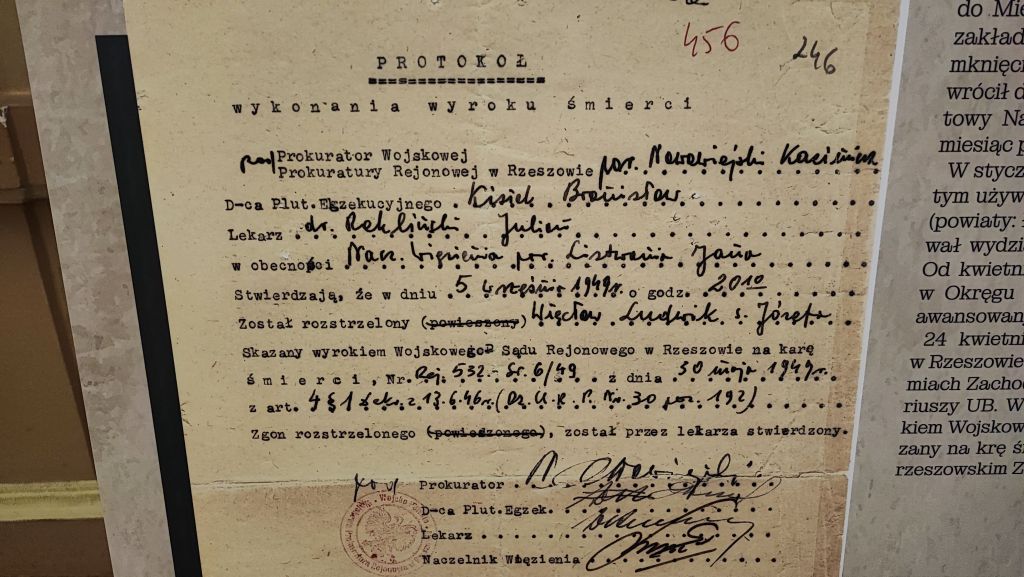 456
246
PROTOKOŁ
wykonania wyroku śmierci
Prokurator Wojskowej
Prokuratury Rejonowej w Rzeszowie por. Nowowiejski Kazimierz
D-ca Plut.Egzekucyjnego Kisiek Bronisław
Lekarz dr. Julian
w obecności Nacz. Więzienia por. Listwania Jana
Stwierdzają, że w dniu 5 września 1949r. o godz. 20¹⁰
Został rozstrzelony (powieszony) Więcław Ludwik s. Józefa
Skazany wyrokiem Wojskowego Sądu Rejonowego w Rzeszowie na karę
śmierci, Nr. Rej. 532. Sr. 6/49 z dnia 30 maja 1949r.
z art. 4 § 1 dekr. z 13.6.46r. (Dz. U. R. P. Nr. 30 poz. 192)
Zgon rozstrzelonego (powieszonego), został przez lekarza stwierdzony.
Prokurator
D-ca Plut.Egzek.
Lekarz
Naczelnik Więzienia
do Mie
zakład
mknięci
wrócił d
towy Na
miesiąc p
W stycz
tym używ
(powiaty:
wał wydzia
Od kwietni
w Okręgu
awansowany
24 kwietni
w Rzeszowie
miach Zachoc
riuszy UB. W
kiem Wojskow
zany na krę ś
rzeszowskim Z